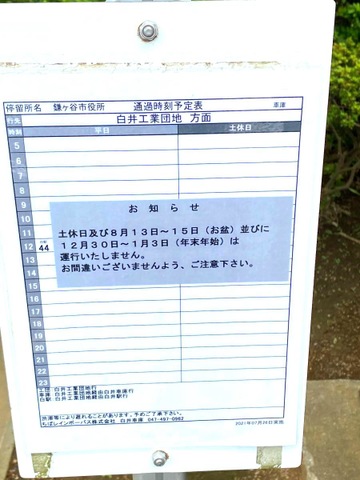 停留所名 鎌ヶ谷市役所 通過時刻予定表 車庫
行先 白井工業団地 方面
時刻 平日 土休日
5
6
7
8
9
10
11
12 44
13
14
15
16
17
18
19
20
21
22
23
お知らせ
土休日及び8月13日～15日（お盆）並びに
12月30日～1月3日（年末年始）は
運行いたしません。
お間違いございませんよう、ご注意下さい。
白井工業団地行
車庫 白井工業団地経由白井車庫行
白駅 白井工業団地経由白井駅行
渋滞等により遅れることがあります。予めご了承下さい。
ちばレインボーバス株式会社 白井車庫 047-497-0962
2021年07月26日実施